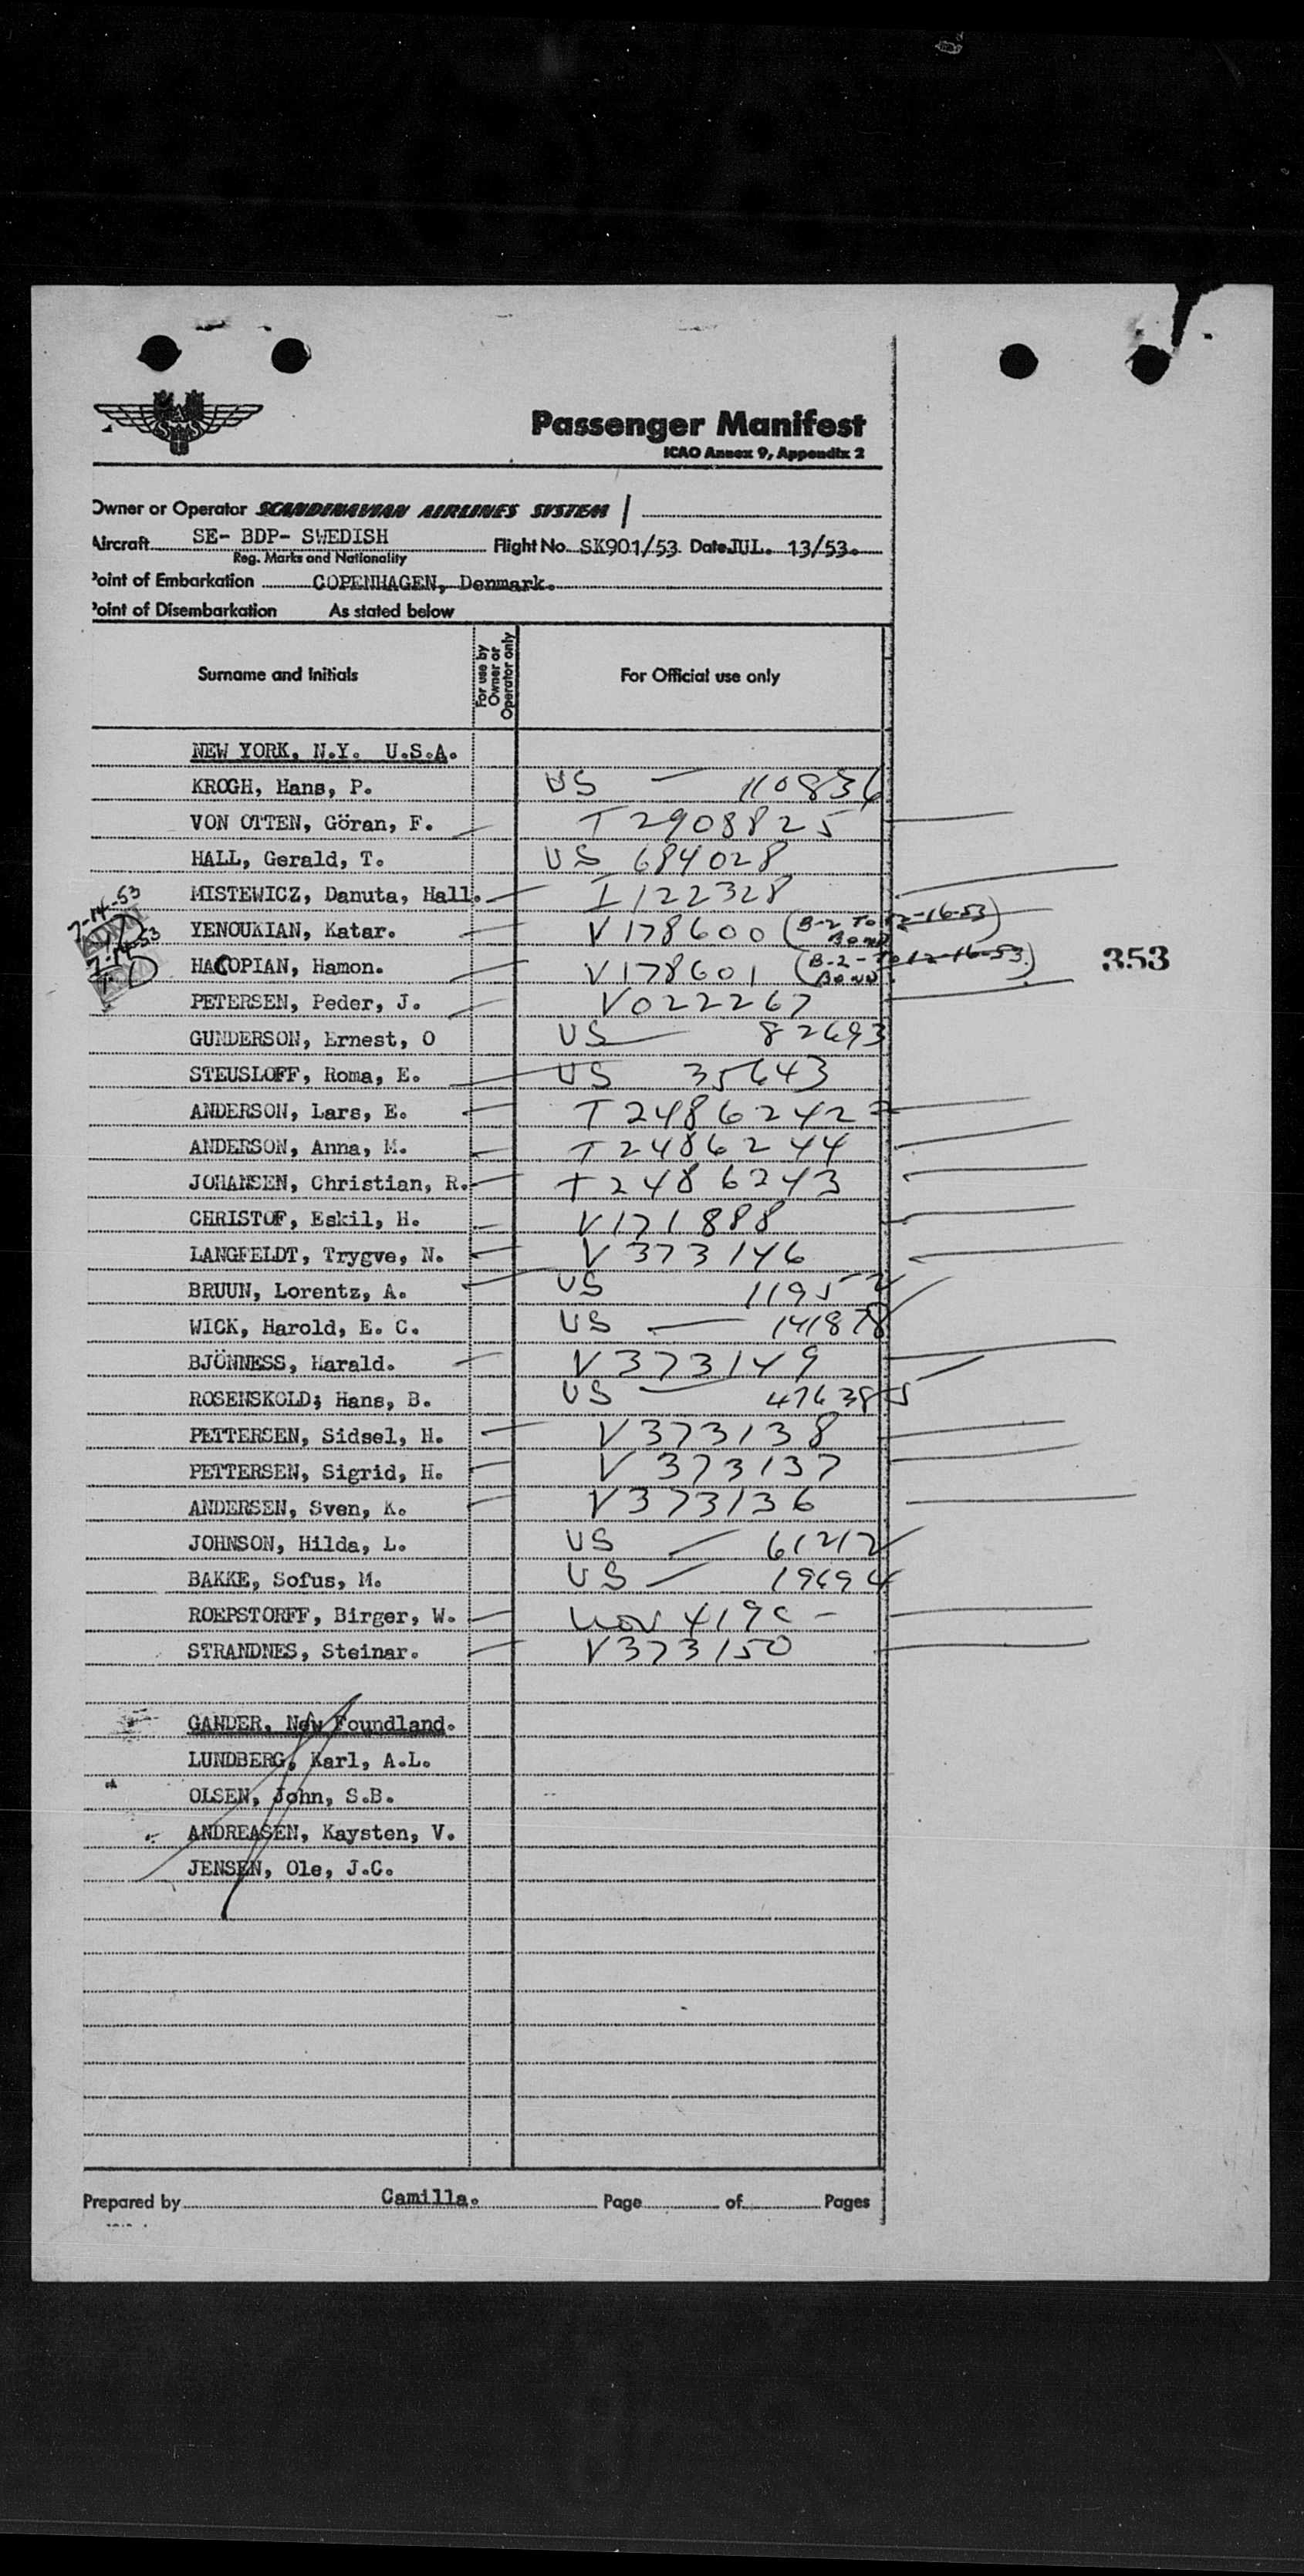 SAS
Passenger Manifest
ICAO Annex 9, Appendix 2
Owner or Operator SCANDINAVIAN AIRLINES SYSTEM
Aircraft SE- BDP- SWEDISH Flight No. SK901/53. Date JUL. 13/53.
Reg. Marks and Nationality
Point of Embarkation COPENHAGEN, Denmark.
Point of Disembarkation As stated below
Surname and Initials For use by Owner or Operator only For Official use only
NEW YORK, N.Y. U.S.A.
KROGH, Hans, P. US — 110836
VON OTTEN, Göran, F. T2908825
HALL, Gerald, T. US 684028
MISTEWICZ, Danuta, Hall. I122328
7-14-53 YENOUKIAN, Katar. V178600 (B-2 To 12-16-53) Bond
7-14-53 HACOPIAN, Hamon. V178601 (B-2 - To 12-16-53.) Bond
353
PETERSEN, Peder, J. V022267
GUNDERSON, Ernest, O US — 82693
STEUSLOFF, Roma, E. US 35643
ANDERSON, Lars, E. T2486242
ANDERSON, Anna, M. T2486244
JOHANSEN, Christian, R. T2486243
CHRISTOF, Eskil, H. V171888
LANGFELDT, Trygve, N. V373146
BRUUN, Lorentz, A. US 11952
WICK, Harold, E. C. US — 141878
BJÖNNESS, Harald. V373149
ROSENSKOLD; Hans, B. US — 476385
PETTERSEN, Sidsel, H. V373138
PETTERSEN, Sigrid, H. V373137
ANDERSEN, Sven, K. V373136
JOHNSON, Hilda, L. US — 61212
BAKKE, Sofus, M. US — 19694
ROEPSTORFF, Birger, W.
STRANDNES, Steinar. V373150
GANDER, New Foundland.
LUNDBERG, Karl, A.L.
OLSEN, John, S.B.
ANDREASEN, Kaysten, V.
JENSEN, Ole, J.C.
Prepared by Camilla. Page of Pages